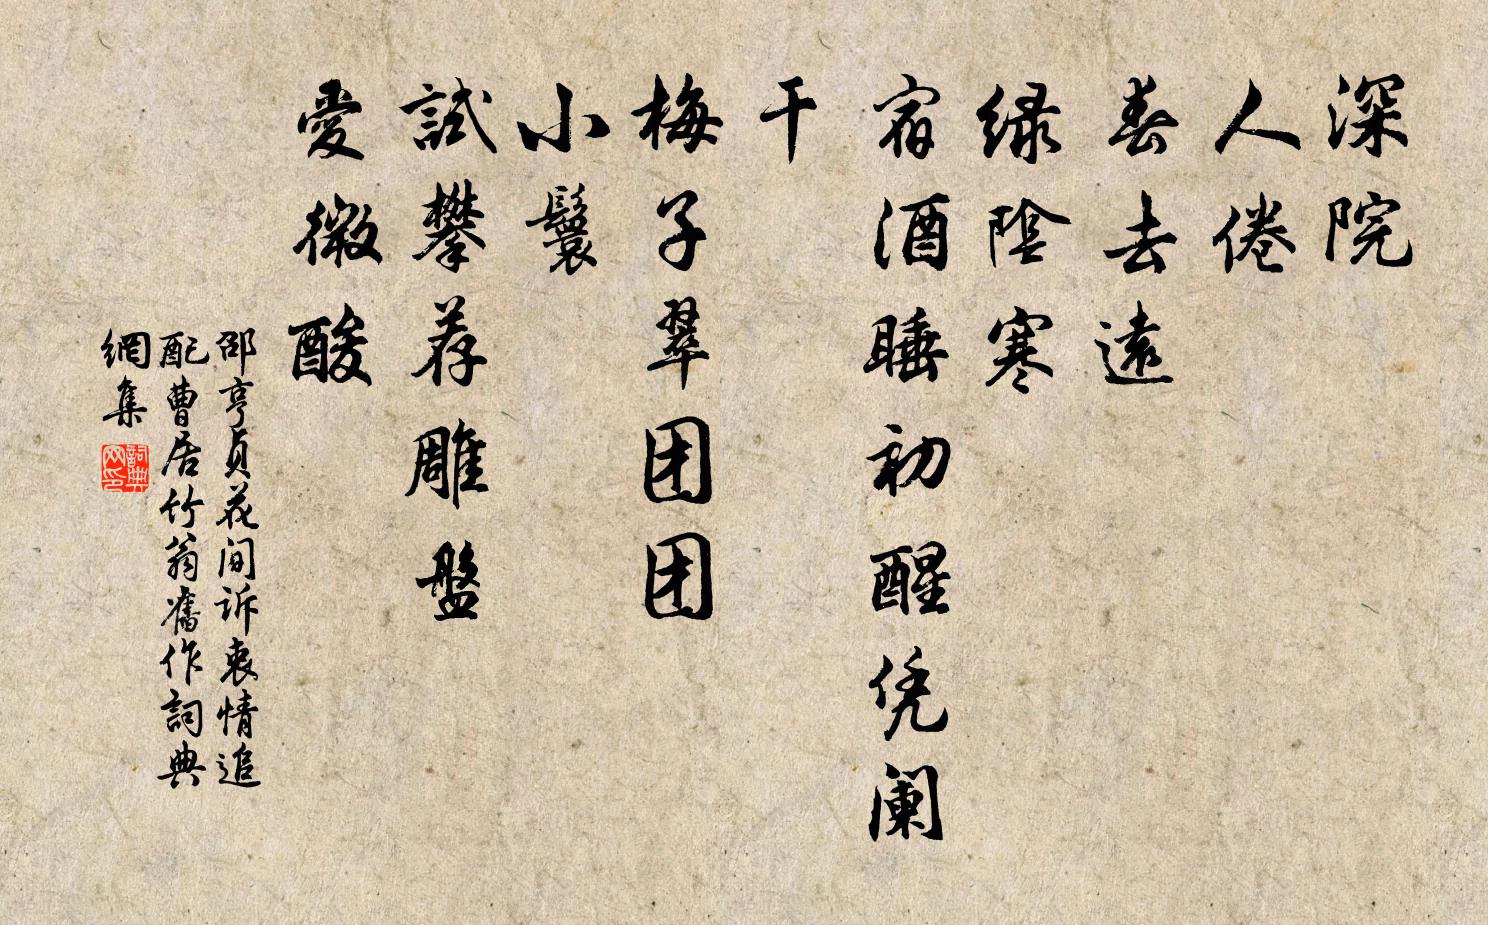 深院
人倦
春去遠
緑陰寒
宿酒睡初醒凭阑
干
梅子翠团团
小鬟
試攀荐雕盤
愛微酸
邵亨貞花间訴衷情追
配曹居竹翁舊作詞典
網集
詞典
网印